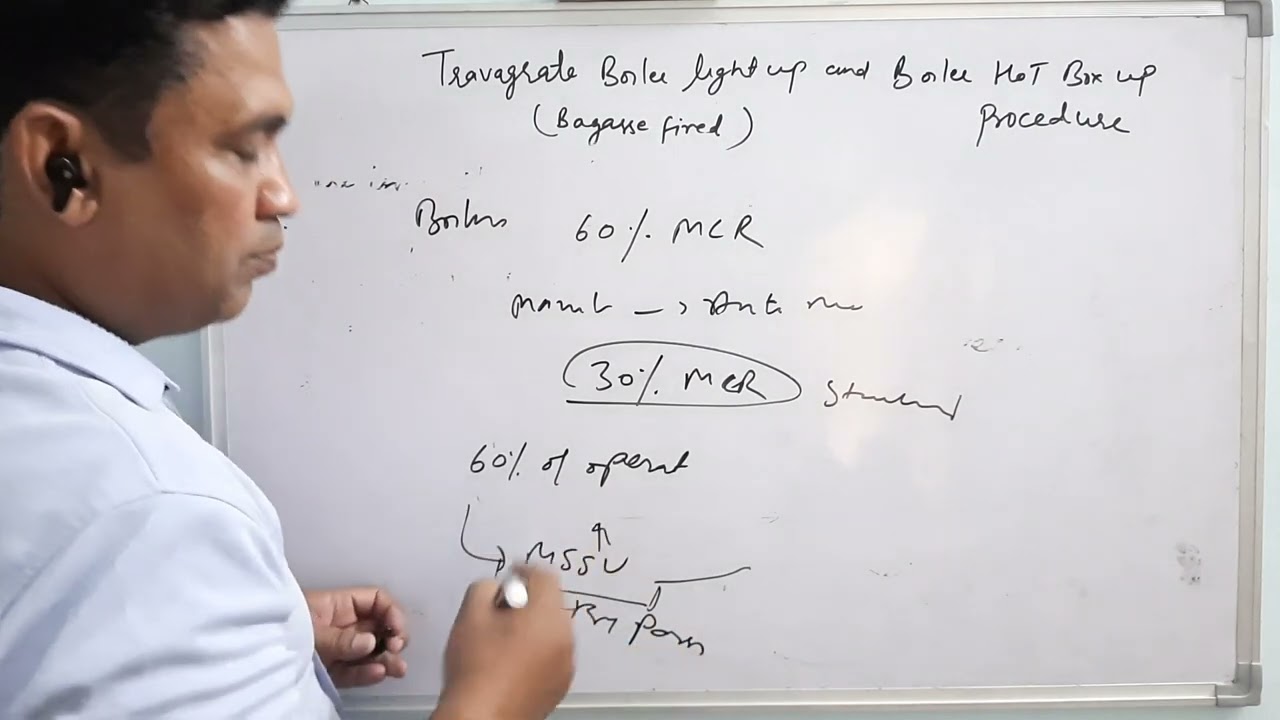 Travagrate Boiler light up and Boiler HOT Box up
Procedure
(Bagasse fired)
Boilers 60% MCR
30% MCR
60% of operat
MSSV
By Pass